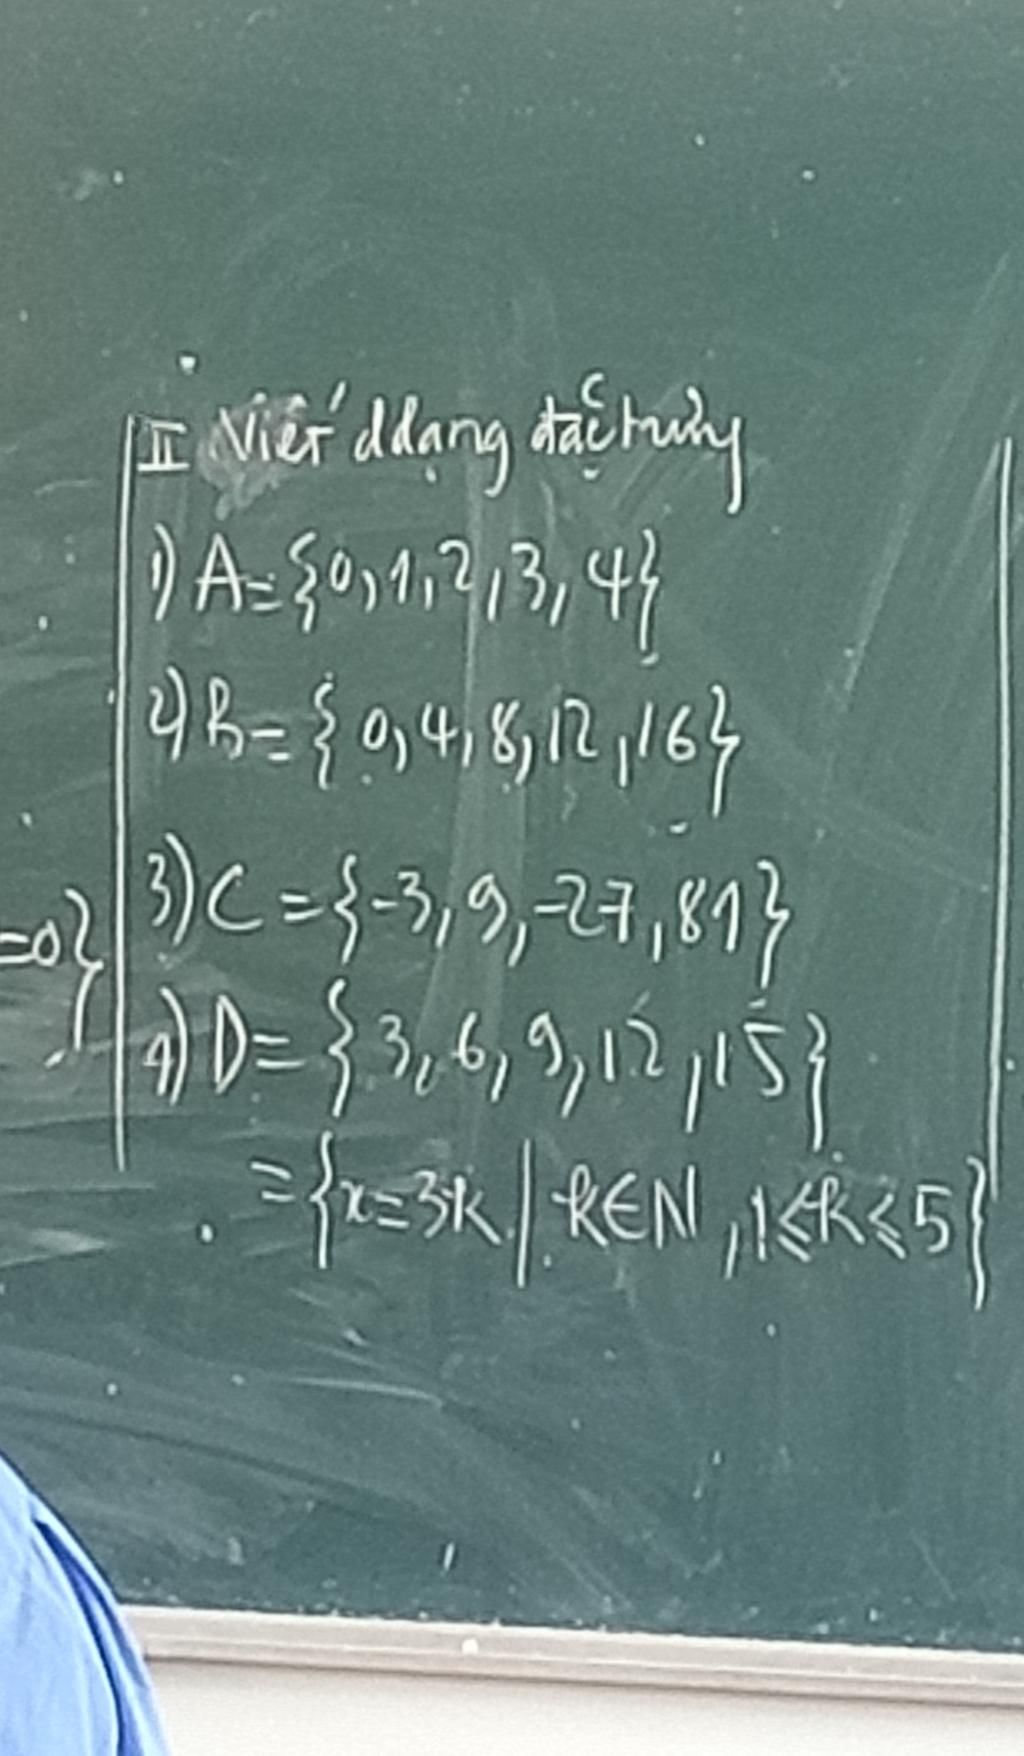 II Viết ddạng đặc trưng
1) A = {0, 1, 2, 3, 4}
2) B = {0, 4, 8, 12, 16}
3) C = {-3, 9, -27, 81}
=0}
4) D = {3, 6, 9, 12, 15}
= {x=3k | k∈N, 1⩽k⩽5}